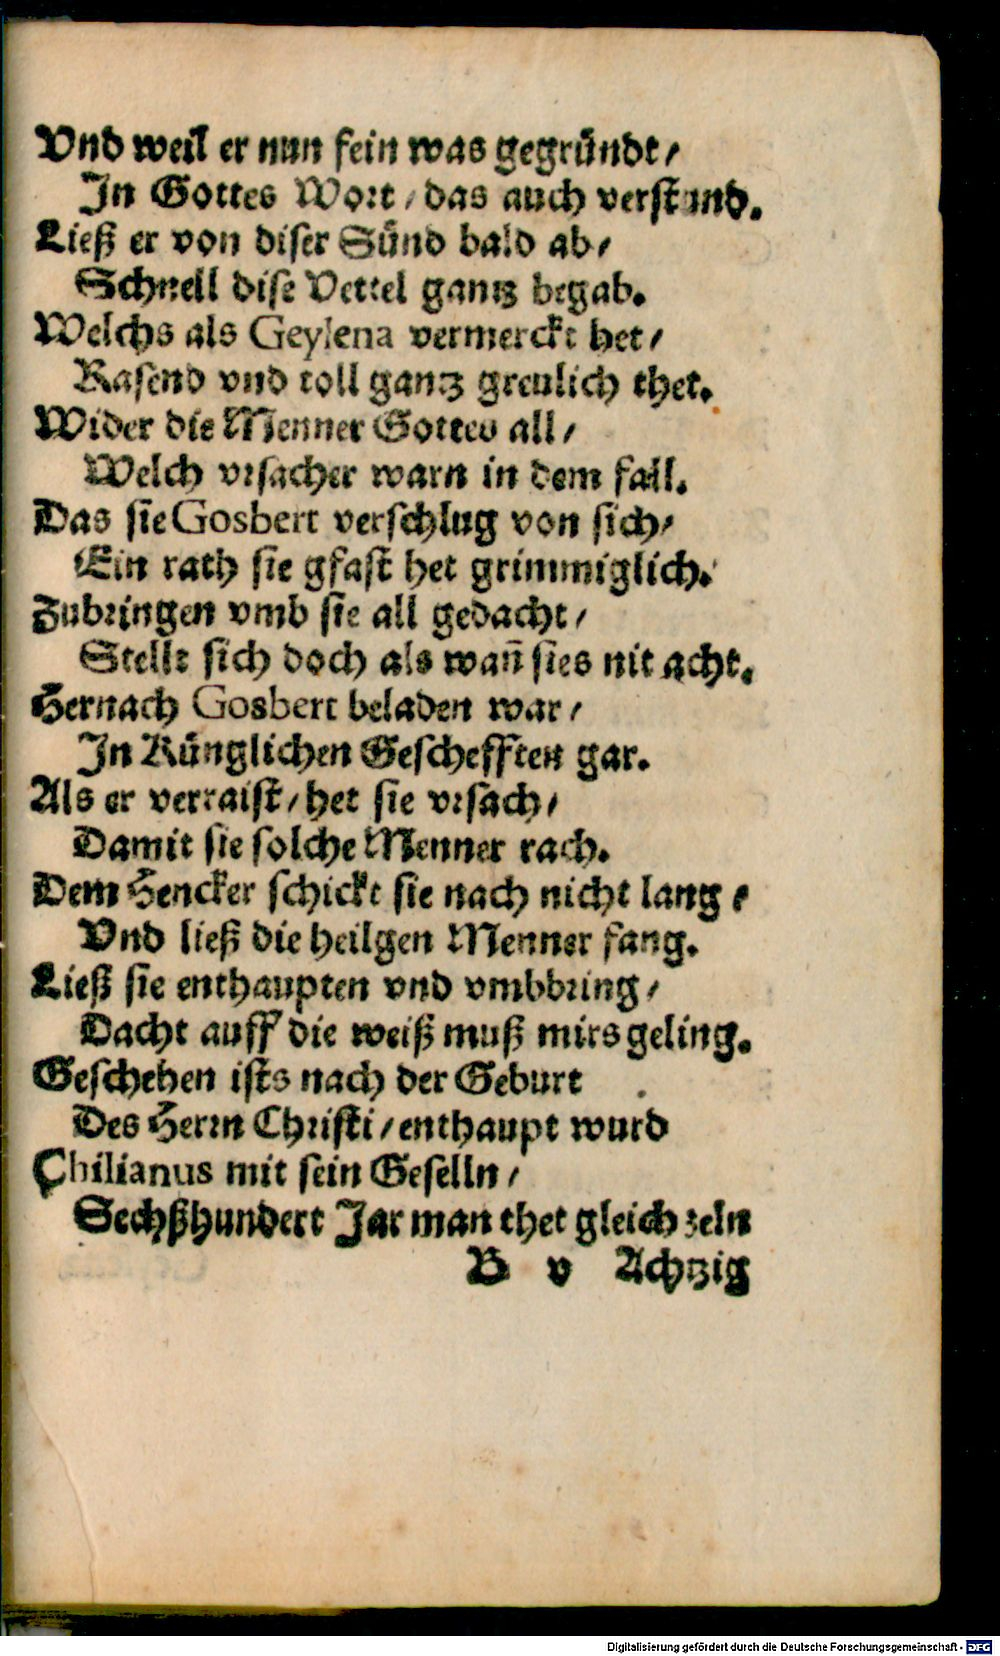 Vnd weil er nun fein was gegründt/
In Gottes Wort/das auch verstand.
Ließ er von diser Sünd bald ab/
Schnell dise Vettel gantz begab.
Welchs als Geylena vermerckt het/
Rasend vnd toll gantz greulich thet.
Wider die Menner Gottes all/
Welch vrsacher warn in dem fall.
Das sie Gosbert verschlug von sich/
Ein rath sie gfast het grimmiglich.
Zubringen vmb sie all gedacht/
Stellt sich doch als wañ sies nit acht.
Hernach Gosbert beladen war/
In Künglichen Geschefften gar.
Als er verraist/het sie vrsach/
Damit sie solche Menner rach.
Dem Hencker schickt sie nach nicht lang/
Vnd ließ die heilgen Menner fang.
Ließ sie enthaupten vnd vmbbring/
Dacht auff die weiß muß mirs geling.
Geschehen ists nach der Geburt
Des Herrn Christi/enthaupt wurd
Chilianus mit sein Geselln/
Sechßhundert Jar man thet gleich zeln
B v Achtzig
Digitalisierung gefördert durch die Deutsche Forschungsgemeinschaft - DFG